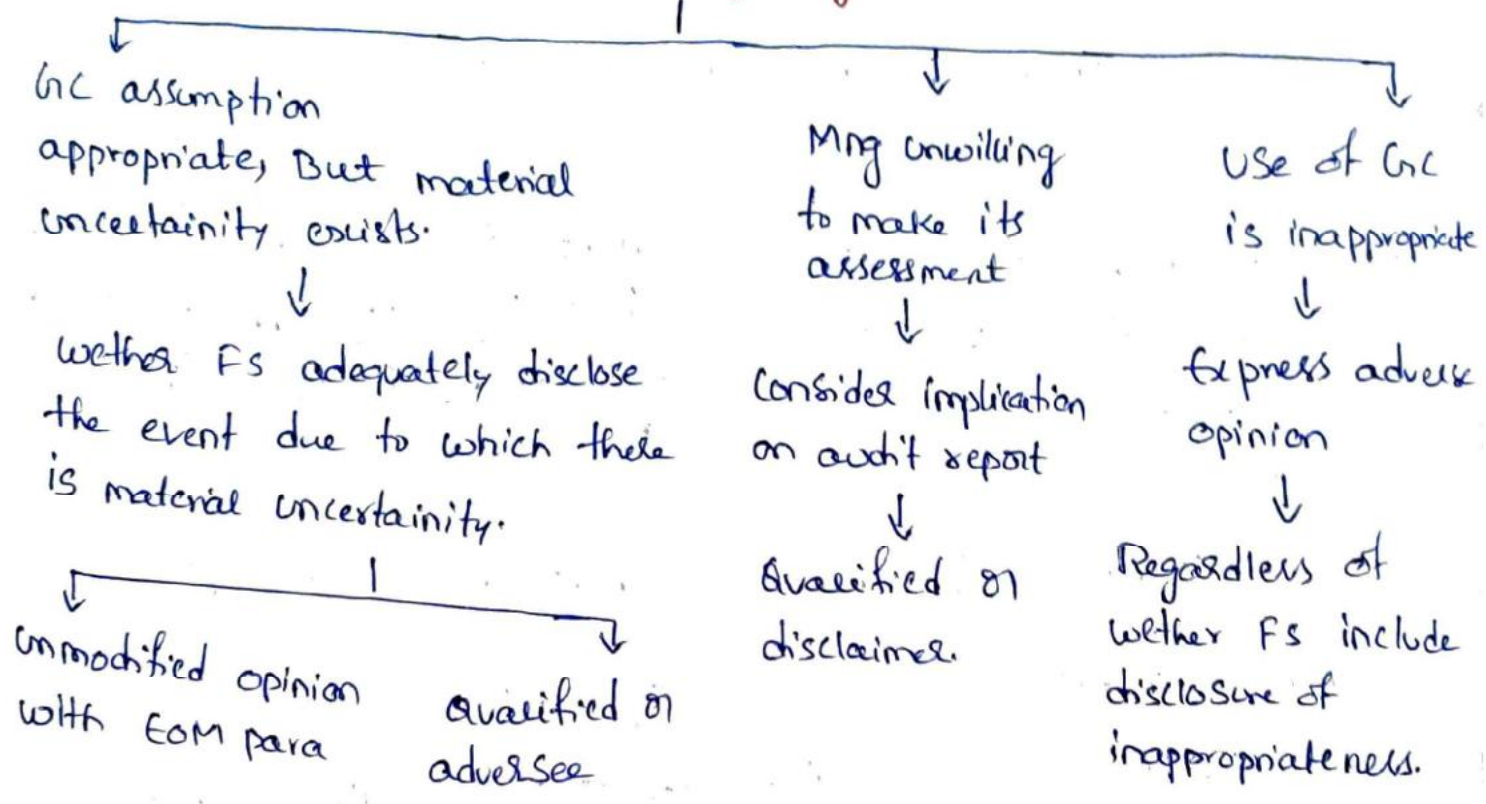 GC assumption
appropriate, But material
uncertainity exists.
wether FS adequately disclose
the event due to which there
is material uncertainity.
unmodified opinion
with EOM para
Qualified or
adversee
Mng unwilling
to make its
assessment
Consider implication
on audit report
Qualified or
disclaimer.
Use of GC
is inappropriate
Express adverse
opinion
Regardless of
wether FS include
disclosure of
inappropriateness.